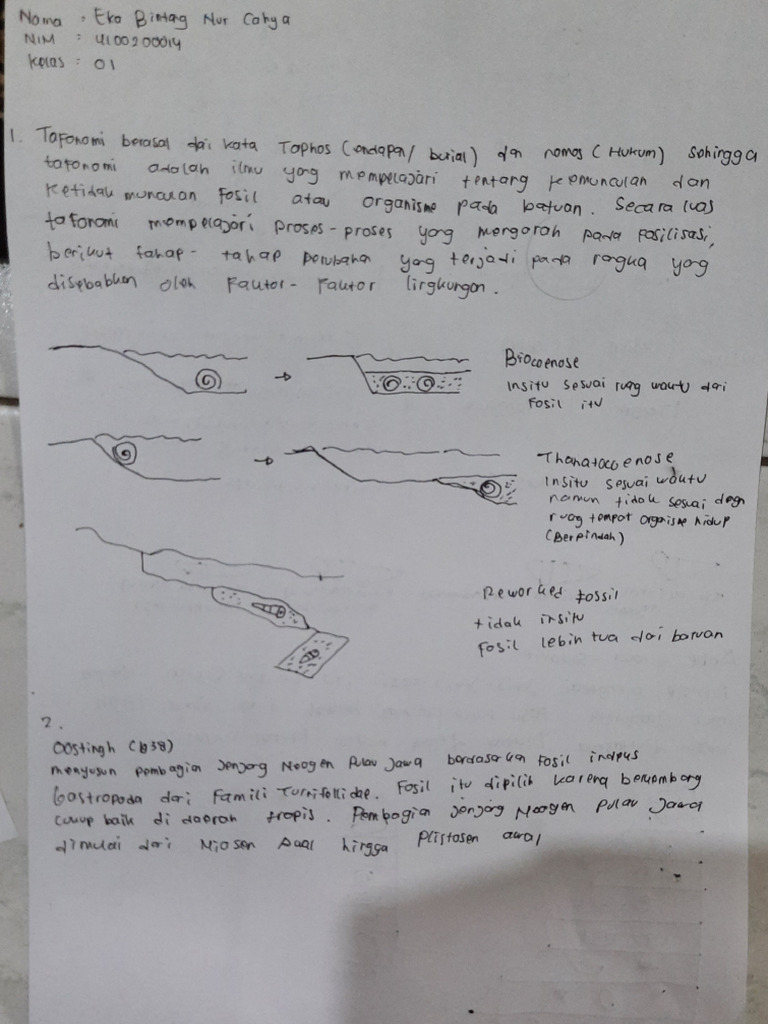 Nama : Eko Bintang Nur Cahya
NIM : 4100200014
Kelas : 01
1. Tafonomi berasal dari kata Taphos (endapan / burial) dan nomos (Hukum) sehingga
tafonomi adalah ilmu yang mempelajari tentang kemunculan dan
Ketidak munculan Fosil atau organisme pada batuan. Secara luas
tafonomi mempelajari proses-proses yang mengarah pada fosilisasi,
berikut tahap-tahap perubahan yang terjadi pada rangka yang
disebabkan oleh Faktor-Faktor lingkungan.
Biocoenose
Insitu sesuai ruang waktu dari
Fosil itu
Thanatocoenose
Insitu sesuai waktu
namun tidak sesuai dengn
ruang tempat organisme hidup
(Berpindah)
Reworked fossil
tidak insitu
Fosil lebih tua dari batuan
2.
Oostingh (1938)
menyusun pembagian Jenjang Neogen Pulau Jawa berdasarkan Fosil indeks
Gastropoda dari Famili Turritellidae. Fosil itu dipilih karena berkembang
cukup baik di daerah tropis. Pembagian jenjang Neogen Pulau Jawa
dimulai dari Miosen Awal hingga Plistosen awal